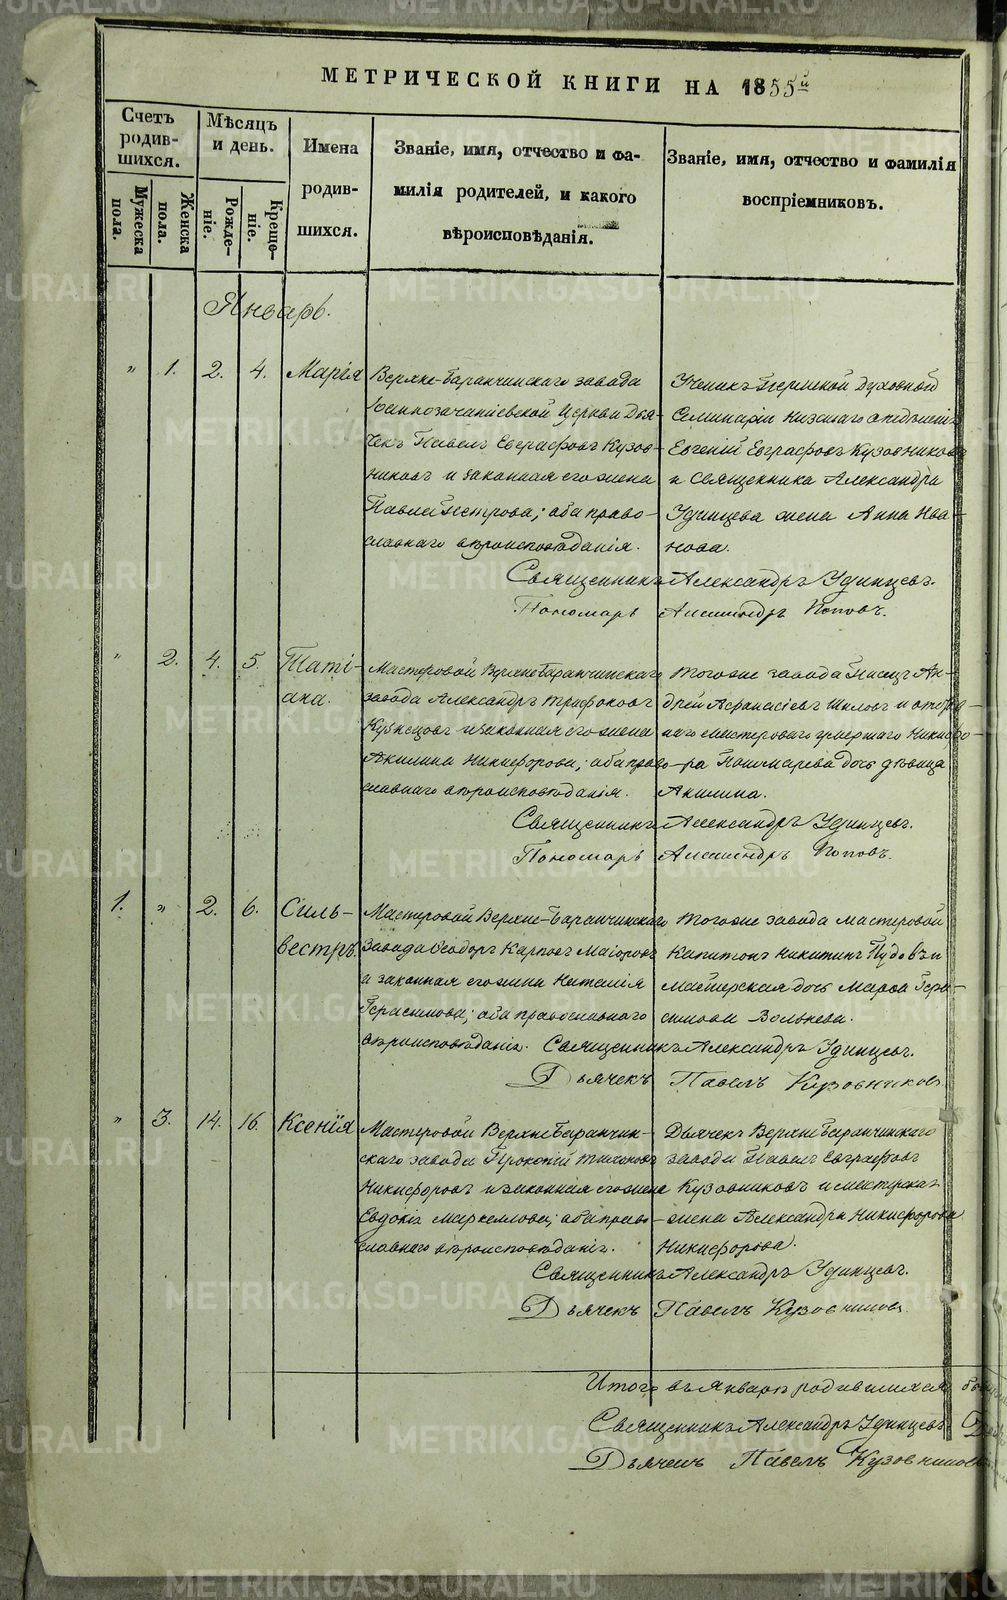 МЕТРИЧЕСКОЙ КНИГИ НА 1855й
Счетъ родив-шихся.
Мужеска пола.
Женска пола.
Мѣсяцъ и день.
Рожде-ніе.
Креще-ніе.
Имена родив-шихся.
Званіе, имя, отчество и фа-
милія родителей, и какого
вѣроисповѣданія.
Званіе, имя, отчество и фамилія
воспріемниковъ.
Январь.
" 1. 2. 4. Марія
Верхне-Баранчинскаго завода
Церкви Дья-
чекъ Павелъ Евграфовъ Кузов-
никовъ и законная его жена
Павла Петрова; оба право-
славнаго вѣроисповѣданія.
Ученикъ Пермской Духовной
Семинаріи Низшаго отдѣленія
Евгеній Евграфовъ Кузовниковъ
и Священника Александра
Удинцева жена Анна Ива-
нова.
Священникъ Александръ Удинцевъ.
Пономарь Александръ Поповъ.
" 2. 4. 5. Таті-
ана.
Мастеровой Верхнебаранчинскаго
завода Александръ Трифоновъ
Кузнецовъ и законная его жена
Акилина Никифорова; оба право-
славнаго вѣроисповѣданія.
Тогоже завода Писецъ Ан-
дрей Афанасіевъ Шиловъ и
мастероваго Никифо-
ра Пономарева дочь дѣвица
Акилина.
Священникъ Александръ Удинцевъ.
Пономарь Александръ Поповъ.
1. " 2. 6. Силь-
вестръ.
Мастеровой Верхне-Баранчинскаго
завода Ѳеодоръ Карповъ Маіоровъ
и законная его жена Наталія
Герасимова; оба православнаго
вѣроисповѣданія.
Тогоже завода мастеровой
Капитонъ Никитинъ Пудовъ и
мастерская дочь Марѳа Гера-
симова Волькева.
Священникъ Александръ Удинцевъ.
Дьячекъ Павелъ Кузовниковъ
" 3. 14. 16. Ксенія
Мастеровой Верхнебаранчин-
скаго завода Прокопій Тихоновъ
Никифоровъ и законная его жена
Евдокія Маркеллова; оба право-
славнаго вѣроисповѣданія.
Дьячекъ Верхнебаранчинскаго
завода Павелъ Евграфовъ
Кузовниковъ и мастерская
жена Александра Никифорова
Никифорова.
Священникъ Александръ Удинцевъ.
Дьячекъ Павелъ Кузовниковъ
Итого въ Январѣ родившихся
Священникъ Александръ Удинцевъ.
Дьячекъ Павелъ Кузовниковъ
METRIKI.GASO-URAL.RU